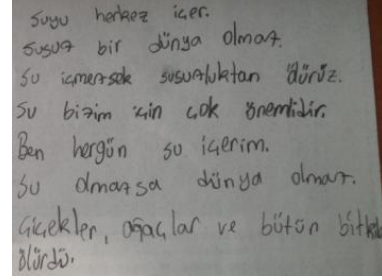 Suyu herkez içer.
Susuz bir dünya olmaz.
Su içmezsek susuzluktan ölürüz.
Su bizim için çok önemlidir.
Ben hergün su içerim.
Su olmazsa dünya olmaz.
Çiçekler, ağaçlar ve bütün
ölürdü.